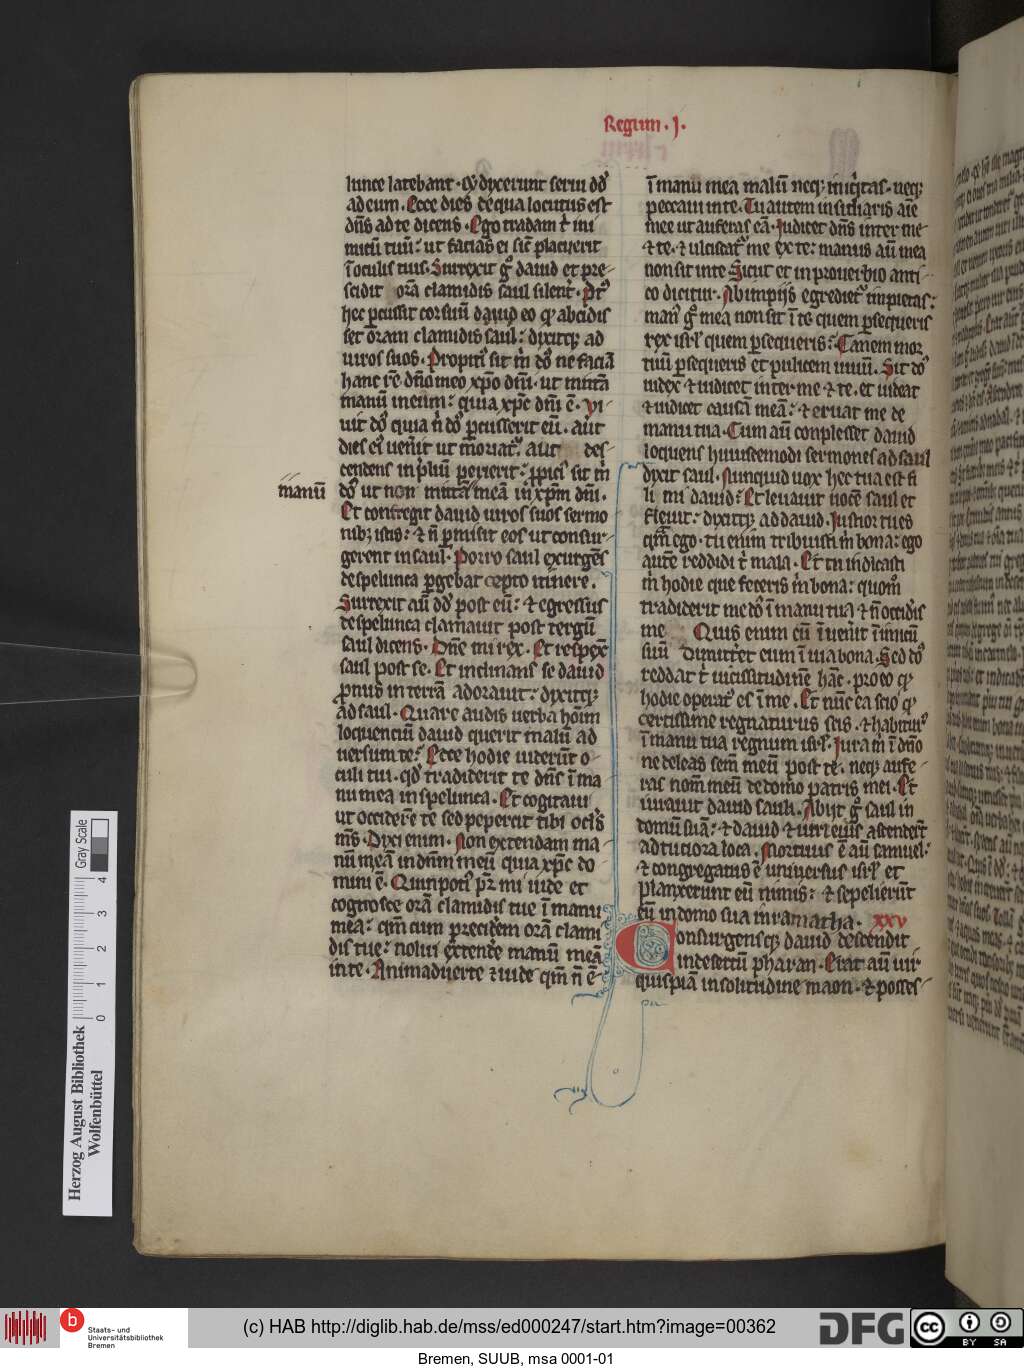 Regum . I .
lunce latebant . Et dixerunt serui dd̄
ad eum . Ecce dies de qua locutus est
dn̄s ad te dicens . Ego tradam t̄ ini
micū tuū: ut facias ei sic̄ placuerit
ī oculis tuis . Surrexit g̊ dauid et pre-
scidit orā clamidis saul silent̄ . Pꝰ
hec ꝑcussit cor suū dauid eo ꝙ abscidis
set oram clamidis saul: dixitqꝫ ad
uiros suos . Propitiꝰ sit m̄ dn̄s ne faciā
hanc rē dn̄o meo xp̄o dn̄i . ut mittā
manū meum: quia xp̄c dn̄i ē . Vi-
uit dn̄s quia n̄ dn̄s ꝑcusserit eū . aut
dies eiꝰ uen̄it ut moriatꝰ: aut des-
cendens in p̄liū perierit: ꝓpiciꝰ sit m̄
manū
dn̄s ut non mittā meā in xp̄m dn̄i .
Et confregit dauid uiros suos sermo
nibꝫ istis: ⁊ n̄ ꝑmisit eos ut consur-
gerent in saul . Porro saul exurgēs
de spelunca ꝑgebat cepto itinere .
Surrexit aū dd̄ post eū: ⁊ egressus
de spelunca clamauit post tergū
saul dicens . Dn̄e mi rex . Et respexꝰ
saul post se . Et inclinans se dauid
ꝓnus in terrā adorauit: dixitqꝫ
ad saul . Quare audis uerba hoīm
loquenciū dauid querit malū ad
uersum te: Ecce hodie uiderūt o-
culi tui . qd̄ tradiderit te dn̄s ī ma
nu mea in spelunca . Et cogitaui
ut occiderē te sed pepercit tibi oclꝰs
mꝰs . Dixi enim . Non extendam ma
nū meā in dn̄m meū quia xp̄c do
mini ē . Quin potiꝰ pr̄ mi uide et
cognosce orā clamidis tue ī manu
mea: qm̄ cum precidēm orā clami
dis tue: nolui extendē manū meā
in te . Animaduerte ⁊ uide qm̄ n̄ ē
ī manu mea malū neqꝫ iniq̇tas . neqꝫ
peccaui in te . Tu autem insidiaris aīe
mee ut auferas eā . Iudicet dn̄s inter me
⁊ te . ⁊ ulciscatꝰ me ex te: manus aū mea
non sit in te Sicut et in prouerbio anti-
co dicitur . Ab impijs egredietꝰ impietas:
manꝰ g̊ mea non sit ī te quem ꝑsequeris
rex isrl̄ quem ꝑsequeris: Canem mor
tuū ꝑsequeris et pulicem unū . Sit dn̄s
iudex ⁊ iudicet inter me ⁊ te . et uideat
⁊ iudicet causā meā: ⁊ eruat me de
manu tua . Cum aū conplesset dauid
loquens huiuscemodi sermones ad saul
dixit saul . Nunquid uox hec tua est fi
li mi dauid: Et leuauit uocē saul et
fleuit: dixitqꝫ ad dauid . Iustior tu es
qm̄ ego . tu enim tribuisti m̄ bona: ego
autē reddidi t̄ mala . Et tu indicasti
m̄ hodie que feceris m̄ bona: quom̊
tradiderit me dn̄s ī manu tua ⁊ n̄ occidꝰis
me Quis enim cū ī uen̄it inimicū
suū dimitt̄et eum ī uia bona . Sed dn̄s
reddat t̄ uicissitudinē hāc . pro eo ꝙ
hodie operatꝰ es ī me . Et nūc ea scio ꝙ
certissime regnaturus scis . ⁊ habiturꝰ
ī manu tua regnum isrl̄ . Iura m̄ ī dn̄o
ne deleas sem̄ meū post te . neqꝫ aufe-
ras nom̄ meū de domo patris mei . Et
iurauit dauid sauli . Abijt g̊ saul in
domū suā: ⁊ dauid ⁊ uiri eius ascendert̄
ad tutiora loca . Mortuus ē aū samuel:
⁊ congregatus ē uniuersus isrl̄ et
planxerunt eū nimis: ⁊ sepelierūt
eū in domo sua in ramatha . xxv
Consurgensqꝫ dauid descendit
in desertū pharan . Erat aū uir
quispiā in solitudine maon . ⁊ posses-
Gray Scale
0 1 2 3 4
Herzog August Bibliothek
Wolfenbüttel
b
Staats- und
Universitätsbibliothek
Bremen
(c) HAB http://diglib.hab.de/mss/ed000247/start.htm?image=00362
DFG
cc
BY SA
Bremen, SUUB, msa 0001-01